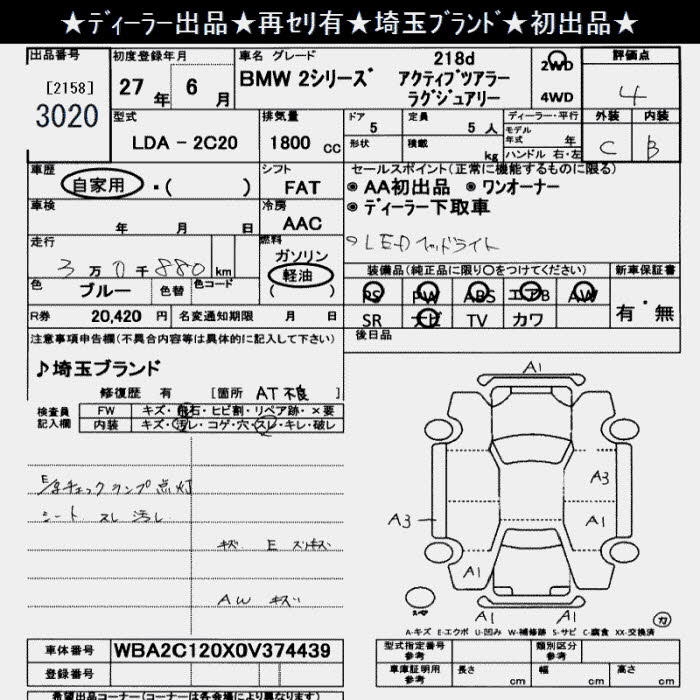 ★ディーラー出品★再セリ有★埼玉ブランド★初出品★
出品番号 初度登録年月 車名 グレード 評価点
[2158] 3020
27年 6月
BMW 2シリーズ 218d アクティブツアラー ラグジュアリー
2WD 4WD
4
型式 LDA - 2C20
排気量 1800 cc
ドア 5 定員 5人
形状 積載 kg
ディーラー・平行
モデル年式 年
ハンドル 右・左
外装 内装
C B
車歴 自家用 ・( )
シフト FAT
セールスポイント(正常に機能するものに限る)
◉ AA初出品 ◉ ワンオーナー
◉ ディーラー下取車
LEDヘッドライト
車検 年 月 日
冷房 AAC
走行 3万0千880km
燃料 ガソリン 軽油 ( )
装備品(純正品に限り○をつけてください) 新車保証書
色 ブルー 色替 色コード
PS PW ABS エアB AW
SR ナビ TV カワ
有・無
R券 20,420 円 名変通知期限 月 日
注意事項申告欄(不具合内容等は具体的に記入して下さい) 後日品
♪埼玉ブランド
修復歴 有 [箇所 AT不良 ]
検査員記入欄
FW キズ・飛石・ヒビ割・リペア跡・×要
内装 キズ・汚レ・コゲ・穴・スレ・キレ・破レ
チェックランプ点灯
シート スレ 汚レ
キズ E スリキズ
AW キズ
A1
A3
A3 A1
A1
A1 A1
スペア
カ
A-キズ E-エクボ U-凹み W-補修跡 S-サビ C-腐食 XX-交換済
車体番号 WBA2C120X0V374439
登録番号
型式指定番号 参考 類別区分 参考
車庫証明用 参考 長さ cm 幅 cm 高さ cm
希望出品コーナー(コーナーは各会場により異なります)